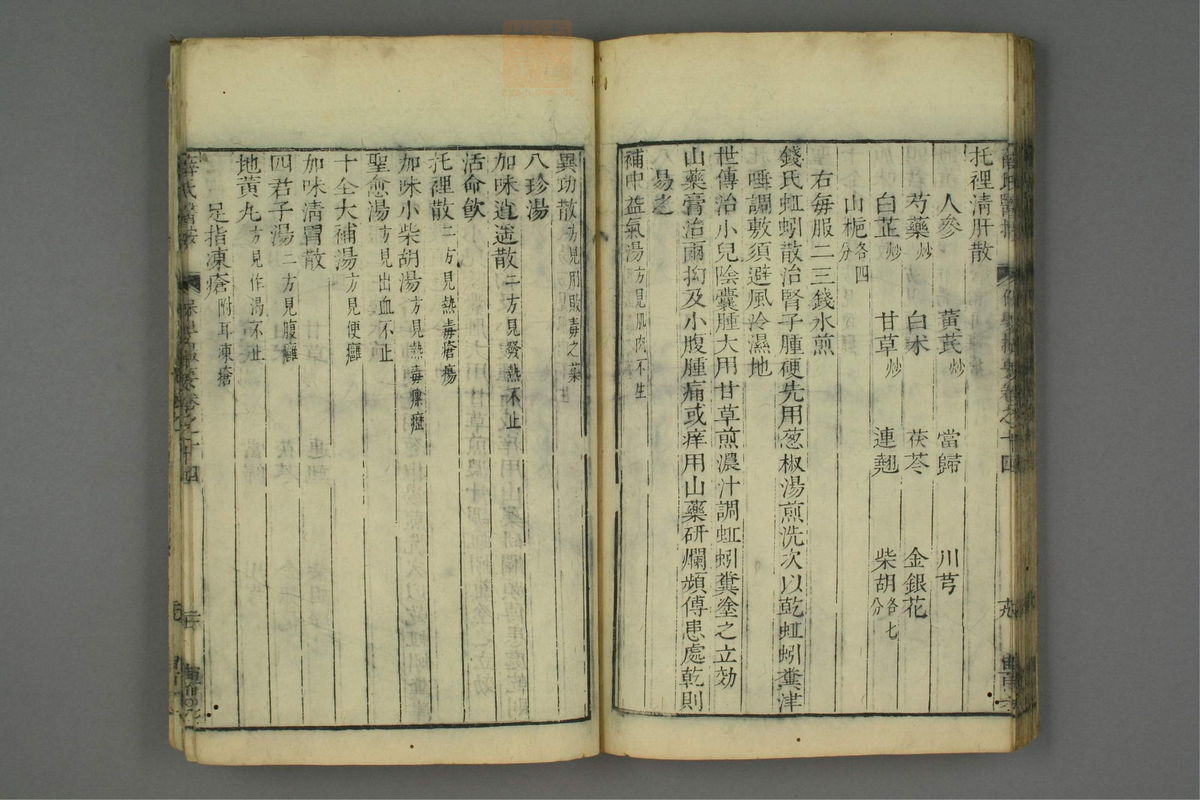 托裡清肝散
人參 黃芪炒 當歸 川芎
芍藥炒 白朮 茯苓 金銀花
白芷炒 甘草炒 連翹 柴胡各七分
山梔各四分
右每服二三錢水煎
錢氏蚯蚓散治腎子腫硬先用葱椒湯煎洗次以乾蚯蚓糞津
唾調敷須避風冷濕地
世傳治小兒陰囊腫大用甘草煎濃汁調蚯蚓糞塗之立効
山藥膏治兩抑及小腹腫痛或痒用山藥研爛頻傅患處乾則
易之
補中益氣湯方見肌肉不生
異功散方見用敗毒之藥
八珍湯
加味逍遥散二方見發熱不止
活命飲
托裡散二方見熱毒瘡瘍
加味小柴胡湯方見熱毒瘰癧
聖愈湯方見出血不止
十全大補湯方見便癰
加味清胃散
四君子湯二方見腹癰
地黃丸方見作渴不止
足指凍瘡附耳凍瘡